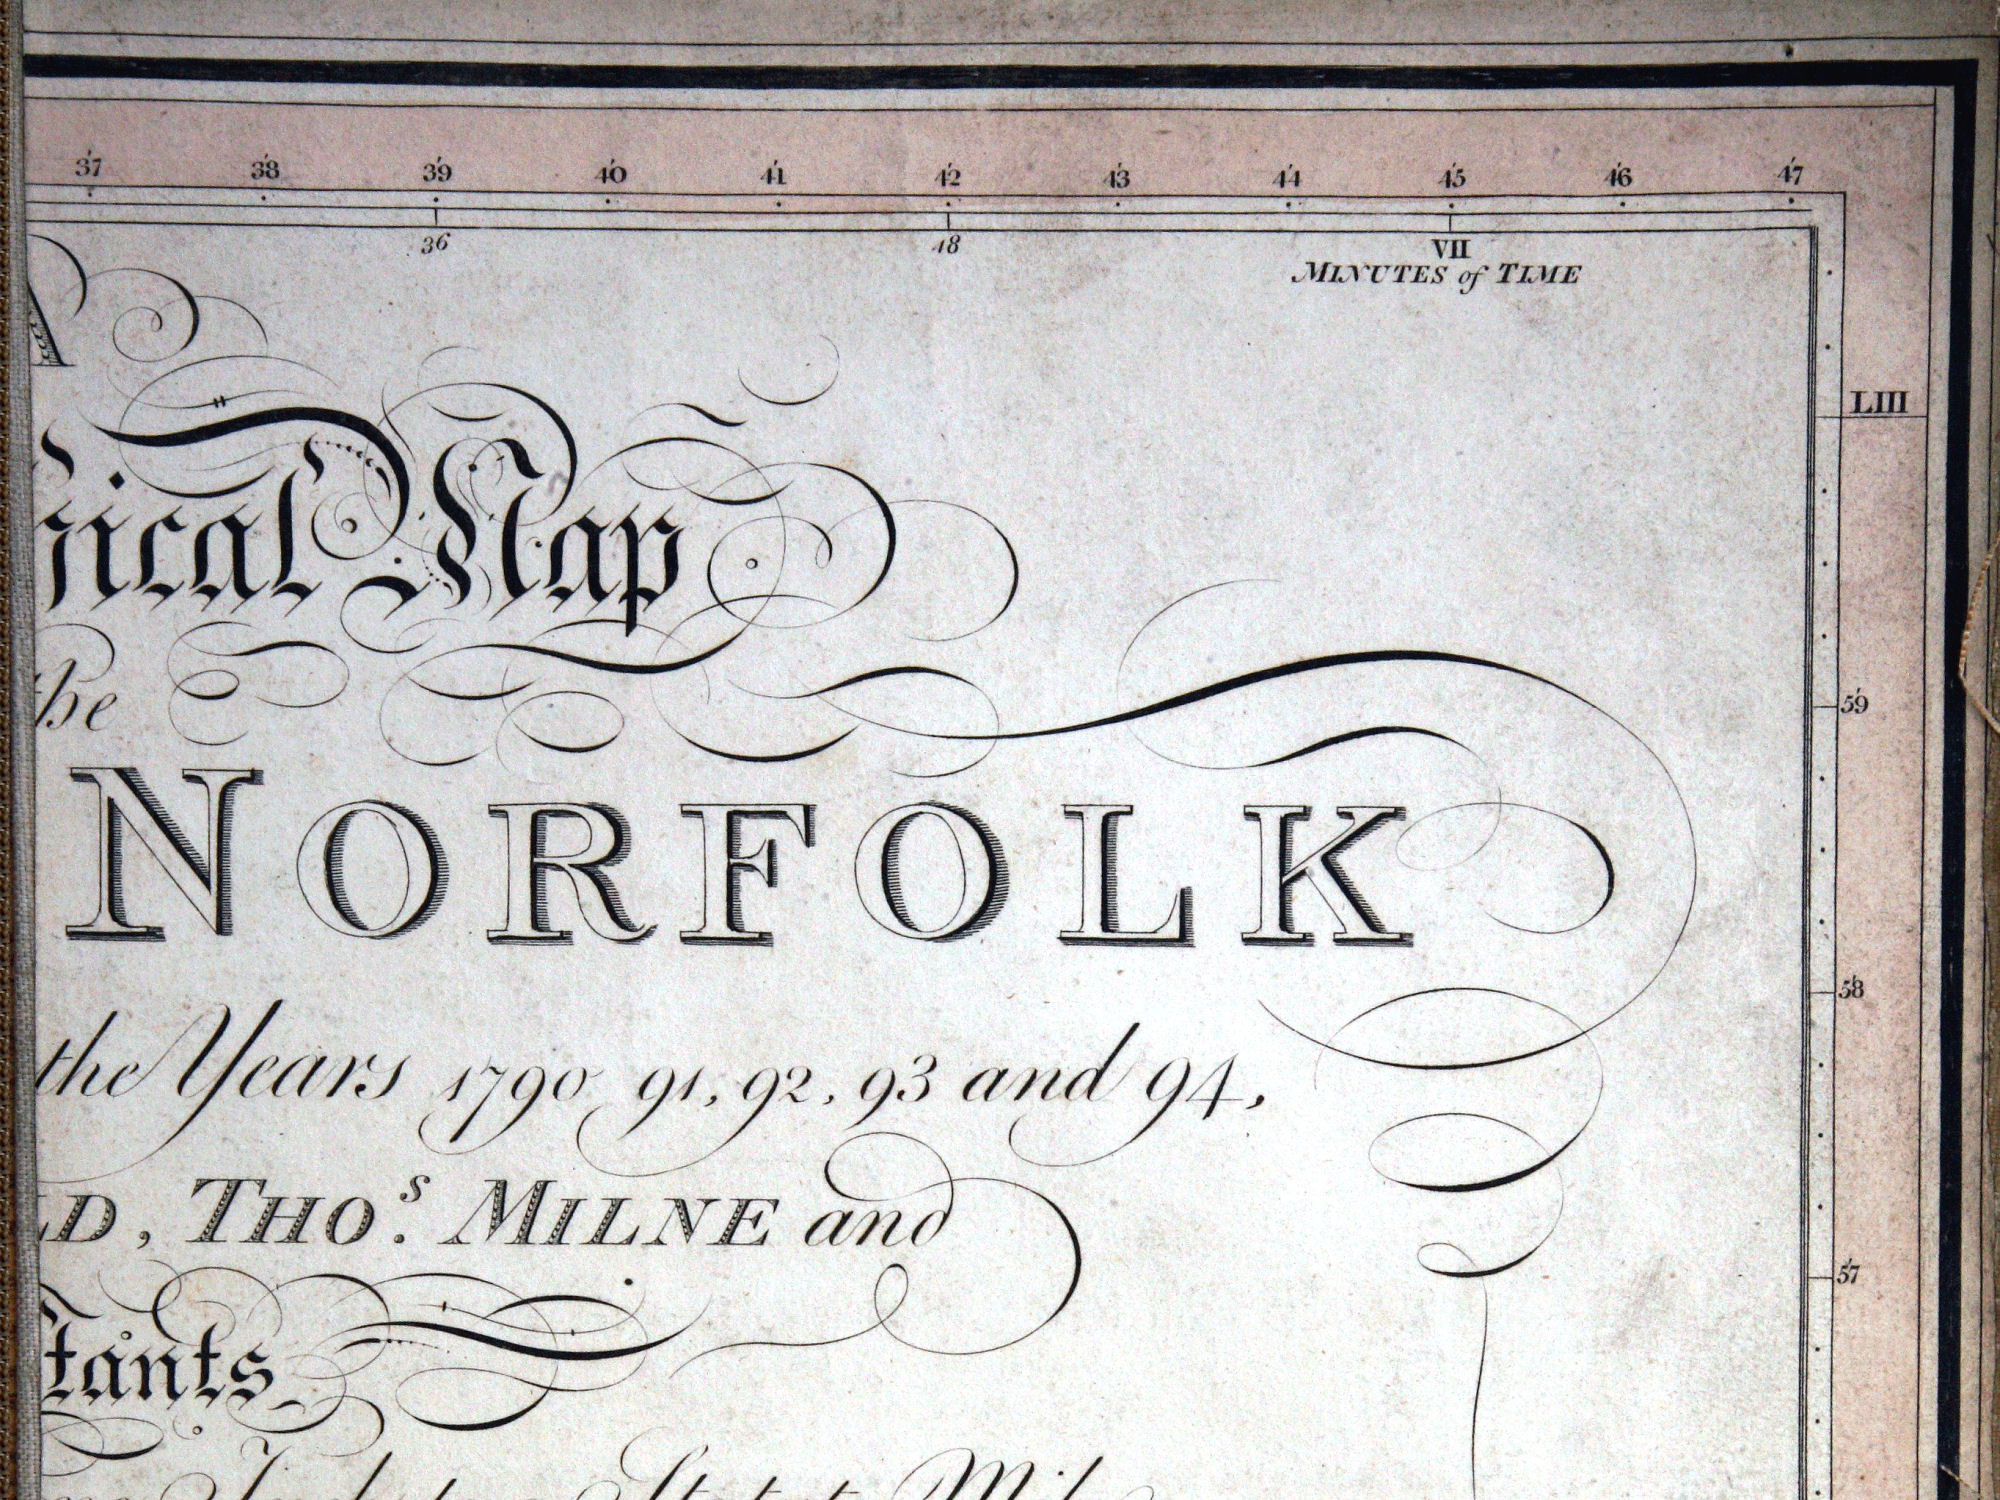 37 38 39 40 41 42 43 44 45 46 47
36 48 VII
MINUTES of TIME
A
LIII
hical Map
the
59
NORFOLK
58
the Years 1790, 91, 92, 93 and 94,
LD, THO.s MILNE and
57
tants
one Inch to a Statute Mile